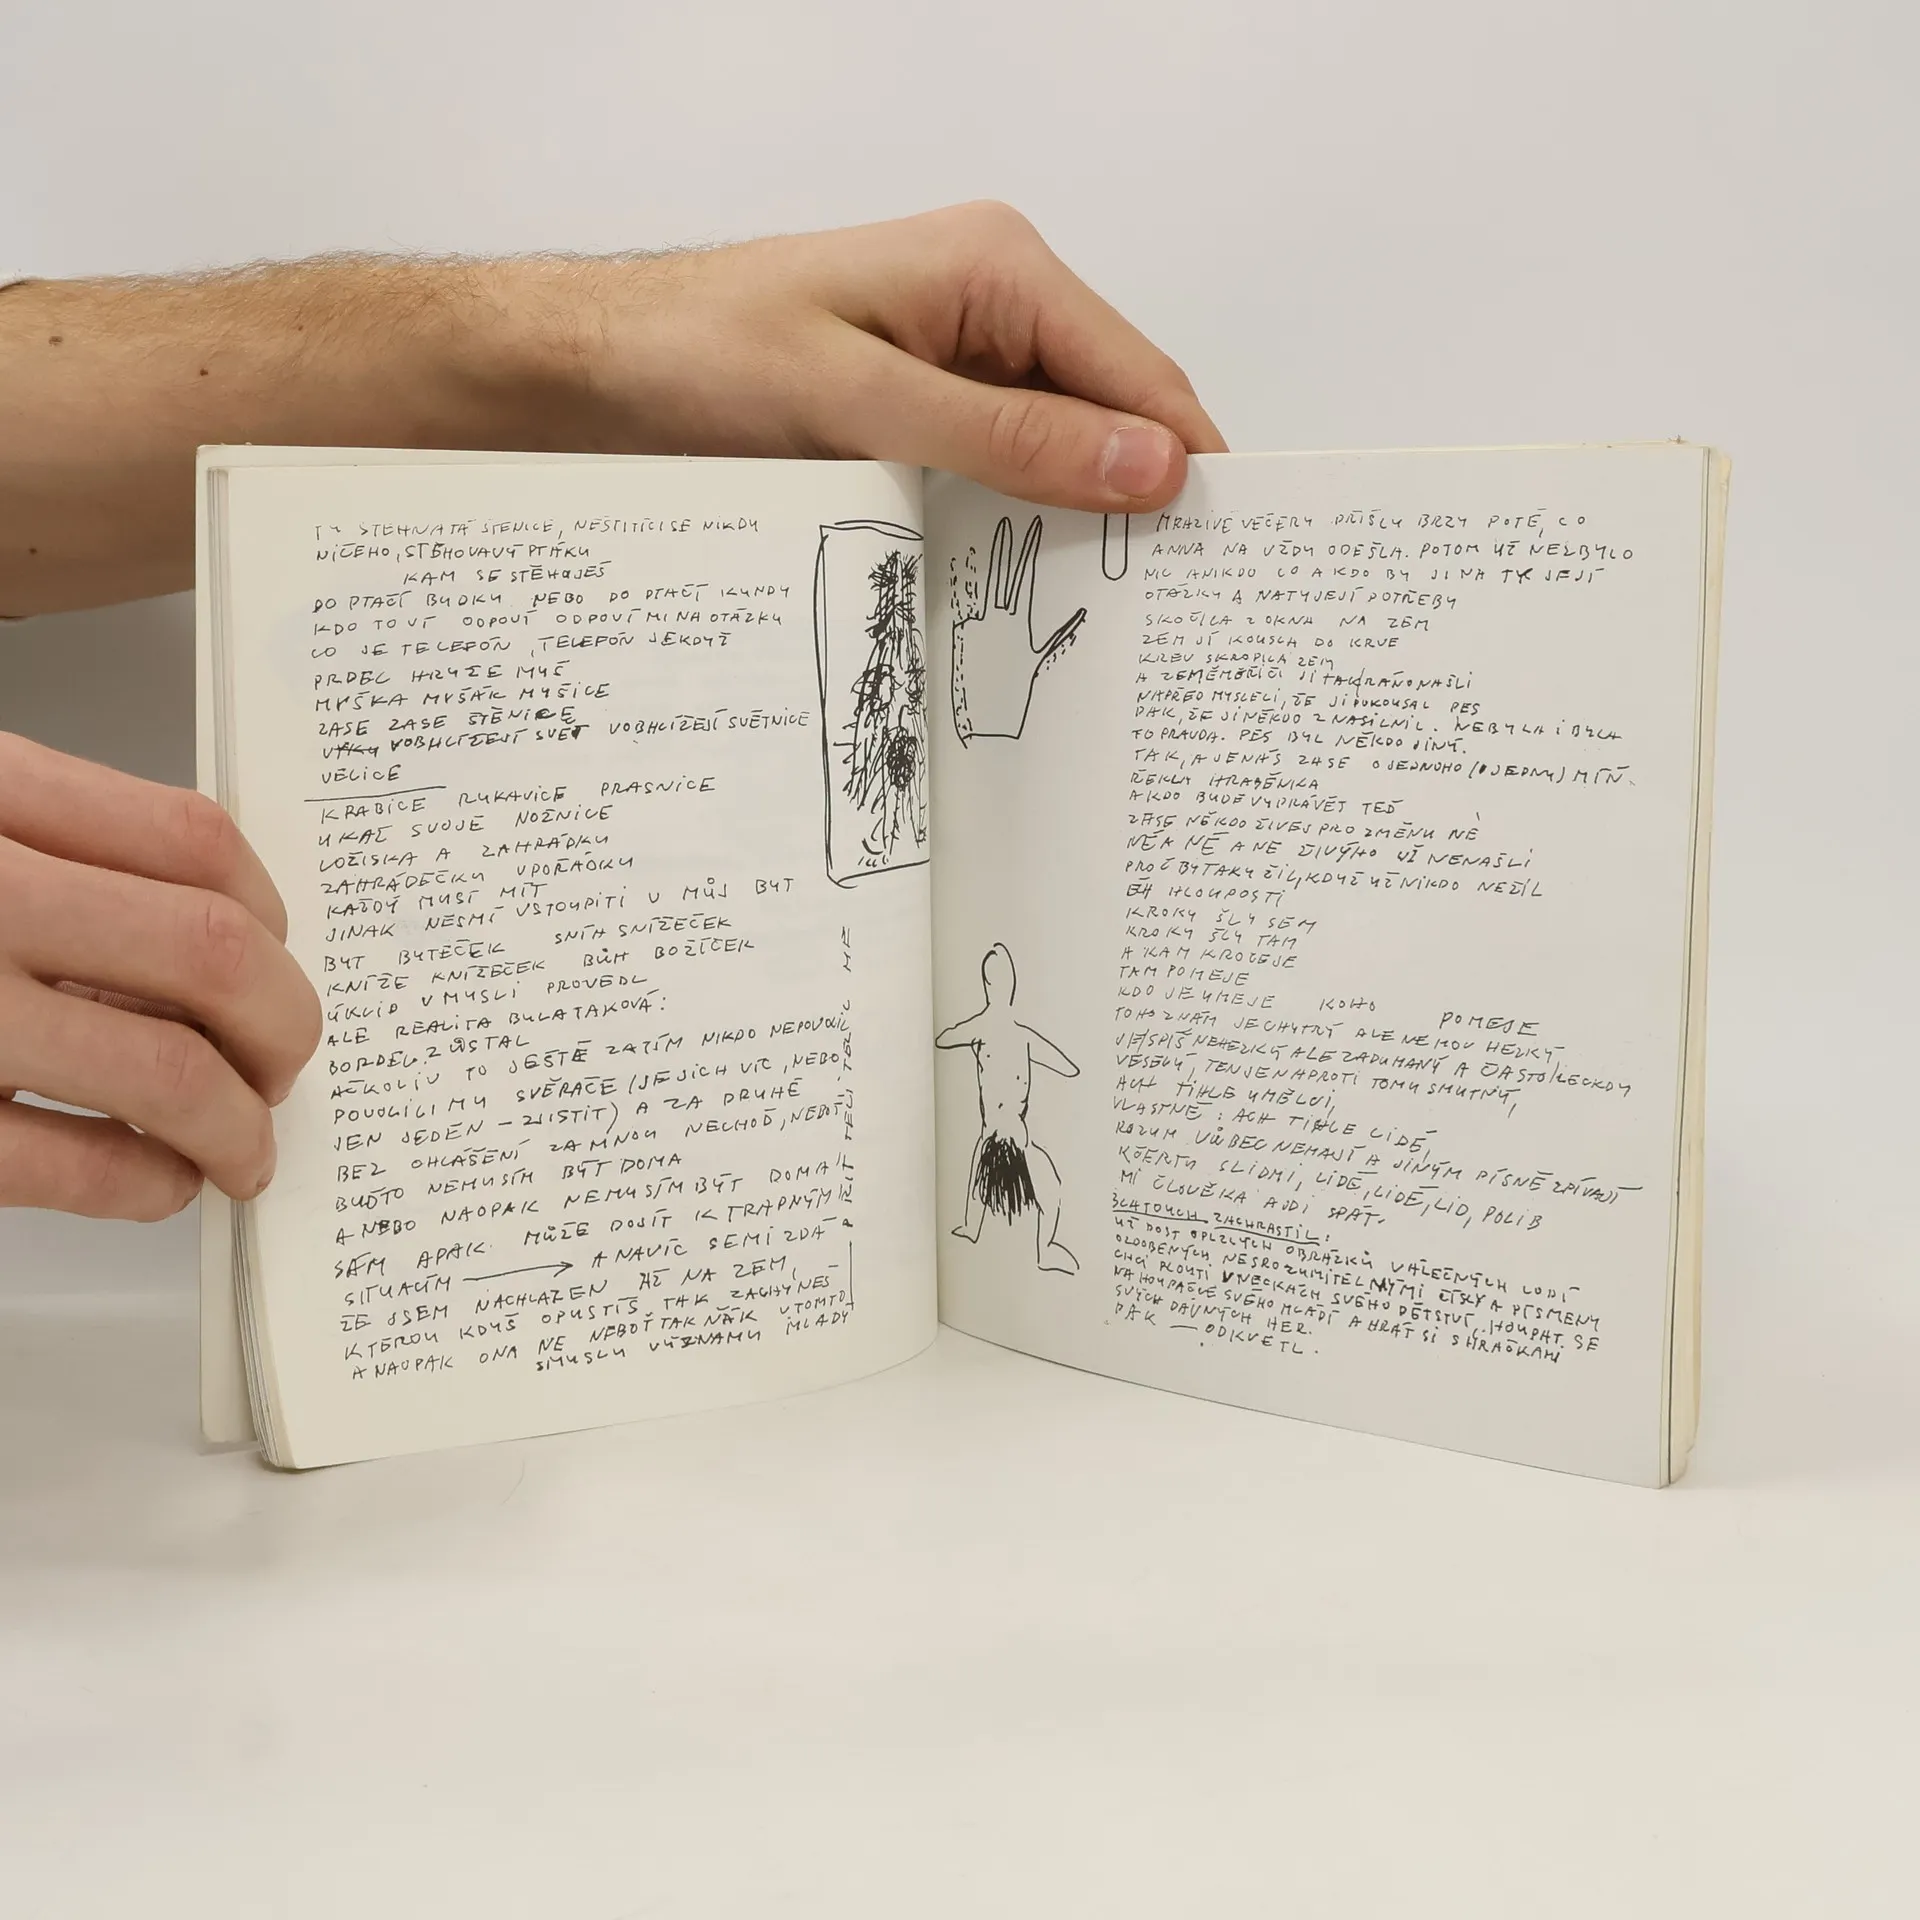 TY STEHNATÁ ŠTĚNICE, NEŠTÍTÍCÍ SE NIKDY
NIČEHO, STĚHOVAVÝ PTÁKU
KAM SE STĚHUJEŠ
DO PTAČÍ BUDKY NEBO DO PTAČÍ KUNDY
KDO TO VÍ ODPOVÍ ODPOVÍ MI NA OTÁZKU
CO JE TELEFÓN, TELEFÓN JE KDYŽ
PRDEL HRYŽE MYŠ
MYŠKA MYŠÁK MYŠICE
ZASE ZASE ŠTĚNICE
VOBHLÍŽEJÍ SVĚT VOBHLÍŽEJÍ SVĚTNICE
VELICE
KRABICE RUKAVICE PRASNICE
UKAŽ SVOJE NOŽNICE
LOŽISKA A ZAHRÁDKU
ZAHRÁDEČKU UPOŘÁDKU
KAŽDÝ MUSÍ MÍT
JINAK NESMÍ VSTOUPITI V MŮJ BYT
BYT BYTEČEK SNÍH SNÍŽEČEK
KNÍŽE KNÍŽEČEK BŮH BOŽÍČEK
ÚKLID V MYSLI PROVEDL
ALE REALITA BYLA TAKOVÁ:
BORDEL ZŮSTAL
AČKOLIV TO JEŠTĚ ZATÍM NIKDO NEPOVOLIL
POVOLILI MU SVĚRAČE (JE JICH VÍC, NEBO
JEN JEDEN – ZJISTIT) A ZA DRUHÉ
BEZ OHLÁŠENÍ ZA MNOU NECHOĎ, NEBOŤ
BUĎTO NEMUSÍM BÝT DOMA
A NEBO NAOPAK NEMUSÍM BÝT DOMA
SÁM APAK. MŮŽE DOJÍT K TRAPNÝM
SITUACÍM → A NAVÍC SE MI ZDÁ
ŽE JSEM NACHLAZEN AŽ NA ZEM,
KTEROU KDYŠ OPUSTÍŠ TAK ZAHYNEŠ
A NAOPAK ONA NE NEBOŤ TAK ŇÁK V TOMTO
SMYSLU VÝZNAMU MLADÝ
MRAZIVÉ VEČERY PŘIŠLY BRZY POTÉ, CO
ANNA NA VŽDY ODEŠLA. POTOM UŽ NEZBYLO
NIC ANIKDO CO A KDO BY JI NA TY JEJÍ
OTÁZKY A NATYJEJÍ POTŘEBY
SKOČILA Z OKNA NA ZEM
ZEM JÍ KOUSLA DO KRVE
KREV SKROPILA ZEM
A ZEMĚMĚŘIČI JÍ TAK RÁNO NAŠLI
NAPŘED MYSLELI, ŽE JI POKOUSAL PES
PAK, ŽE JI NĚKDO ZNÁSILNIL. NEBYLA I BYLA
TO PRAVDA. PES BYL NĚKDO JINÝ.
TAK, A JE NÁS ZASE O JEDNOHO (O JEDNU) MÍŇ
ŘEKLY HRABĚNKA
A KDO BUDE VYPRÁVĚT TEĎ
ZASE NĚKDO ŽIVEJ PRO ZMĚNU NĚ
NĚA NĚ A NE ŽIVÝHO UŽ NENAŠLI
PROČ BY TAKY ŽIL, KDYŽ UŽ NIKDO NEŽIL
EH HLOUPOSTI
KROKY ŠLY SEM
KROKY ŠLY TAM
A KAM KROČEJE
TAM POMEJE
KDO JE UMEJE KOHO POMEJE
TOHO ZNÁM JE CHYTRÝ ALE NEMOU HEZKÝ,
SPÍŠ NEHEZKÝ ALE ZADUMANÝ A ČASTO/LECKDY
VESELÝ, TEN JEN NAPROTI TOMU SMUTNÝ,
ACH TIHLE UMĚLCI,
VLASTNĚ: ACH TIHLE LIDÉ,
ROZUM VŮBEC NEMAJÍ A JINÝM PÍSNĚ ZPÍVAJÍ
KČERTU S LIDMI, LIDÉ, LIDÉ, LID, POLIB
MI ČLOVĚKA A JDI SPÁT.
BLATOUCH ZACHRASTIL:
UŽ DOST OPLZLÝCH OBRÁZKŮ VÁLEČNÝCH LODÍ
OZDOBENÝCH NESROZUMITELNÝMI ČÍSLY A PÍSMENY
CHCI PLOUTI V NECKÁCH SVÉHO DĚTSTVÍ, HOUPAT SE
NA HOUPAČCE SVÉHO MLÁDÍ A HRÁT SI S HRAČKAMI
SVÝCH DÁVNÝCH HER.
PAK — ODKVETL.